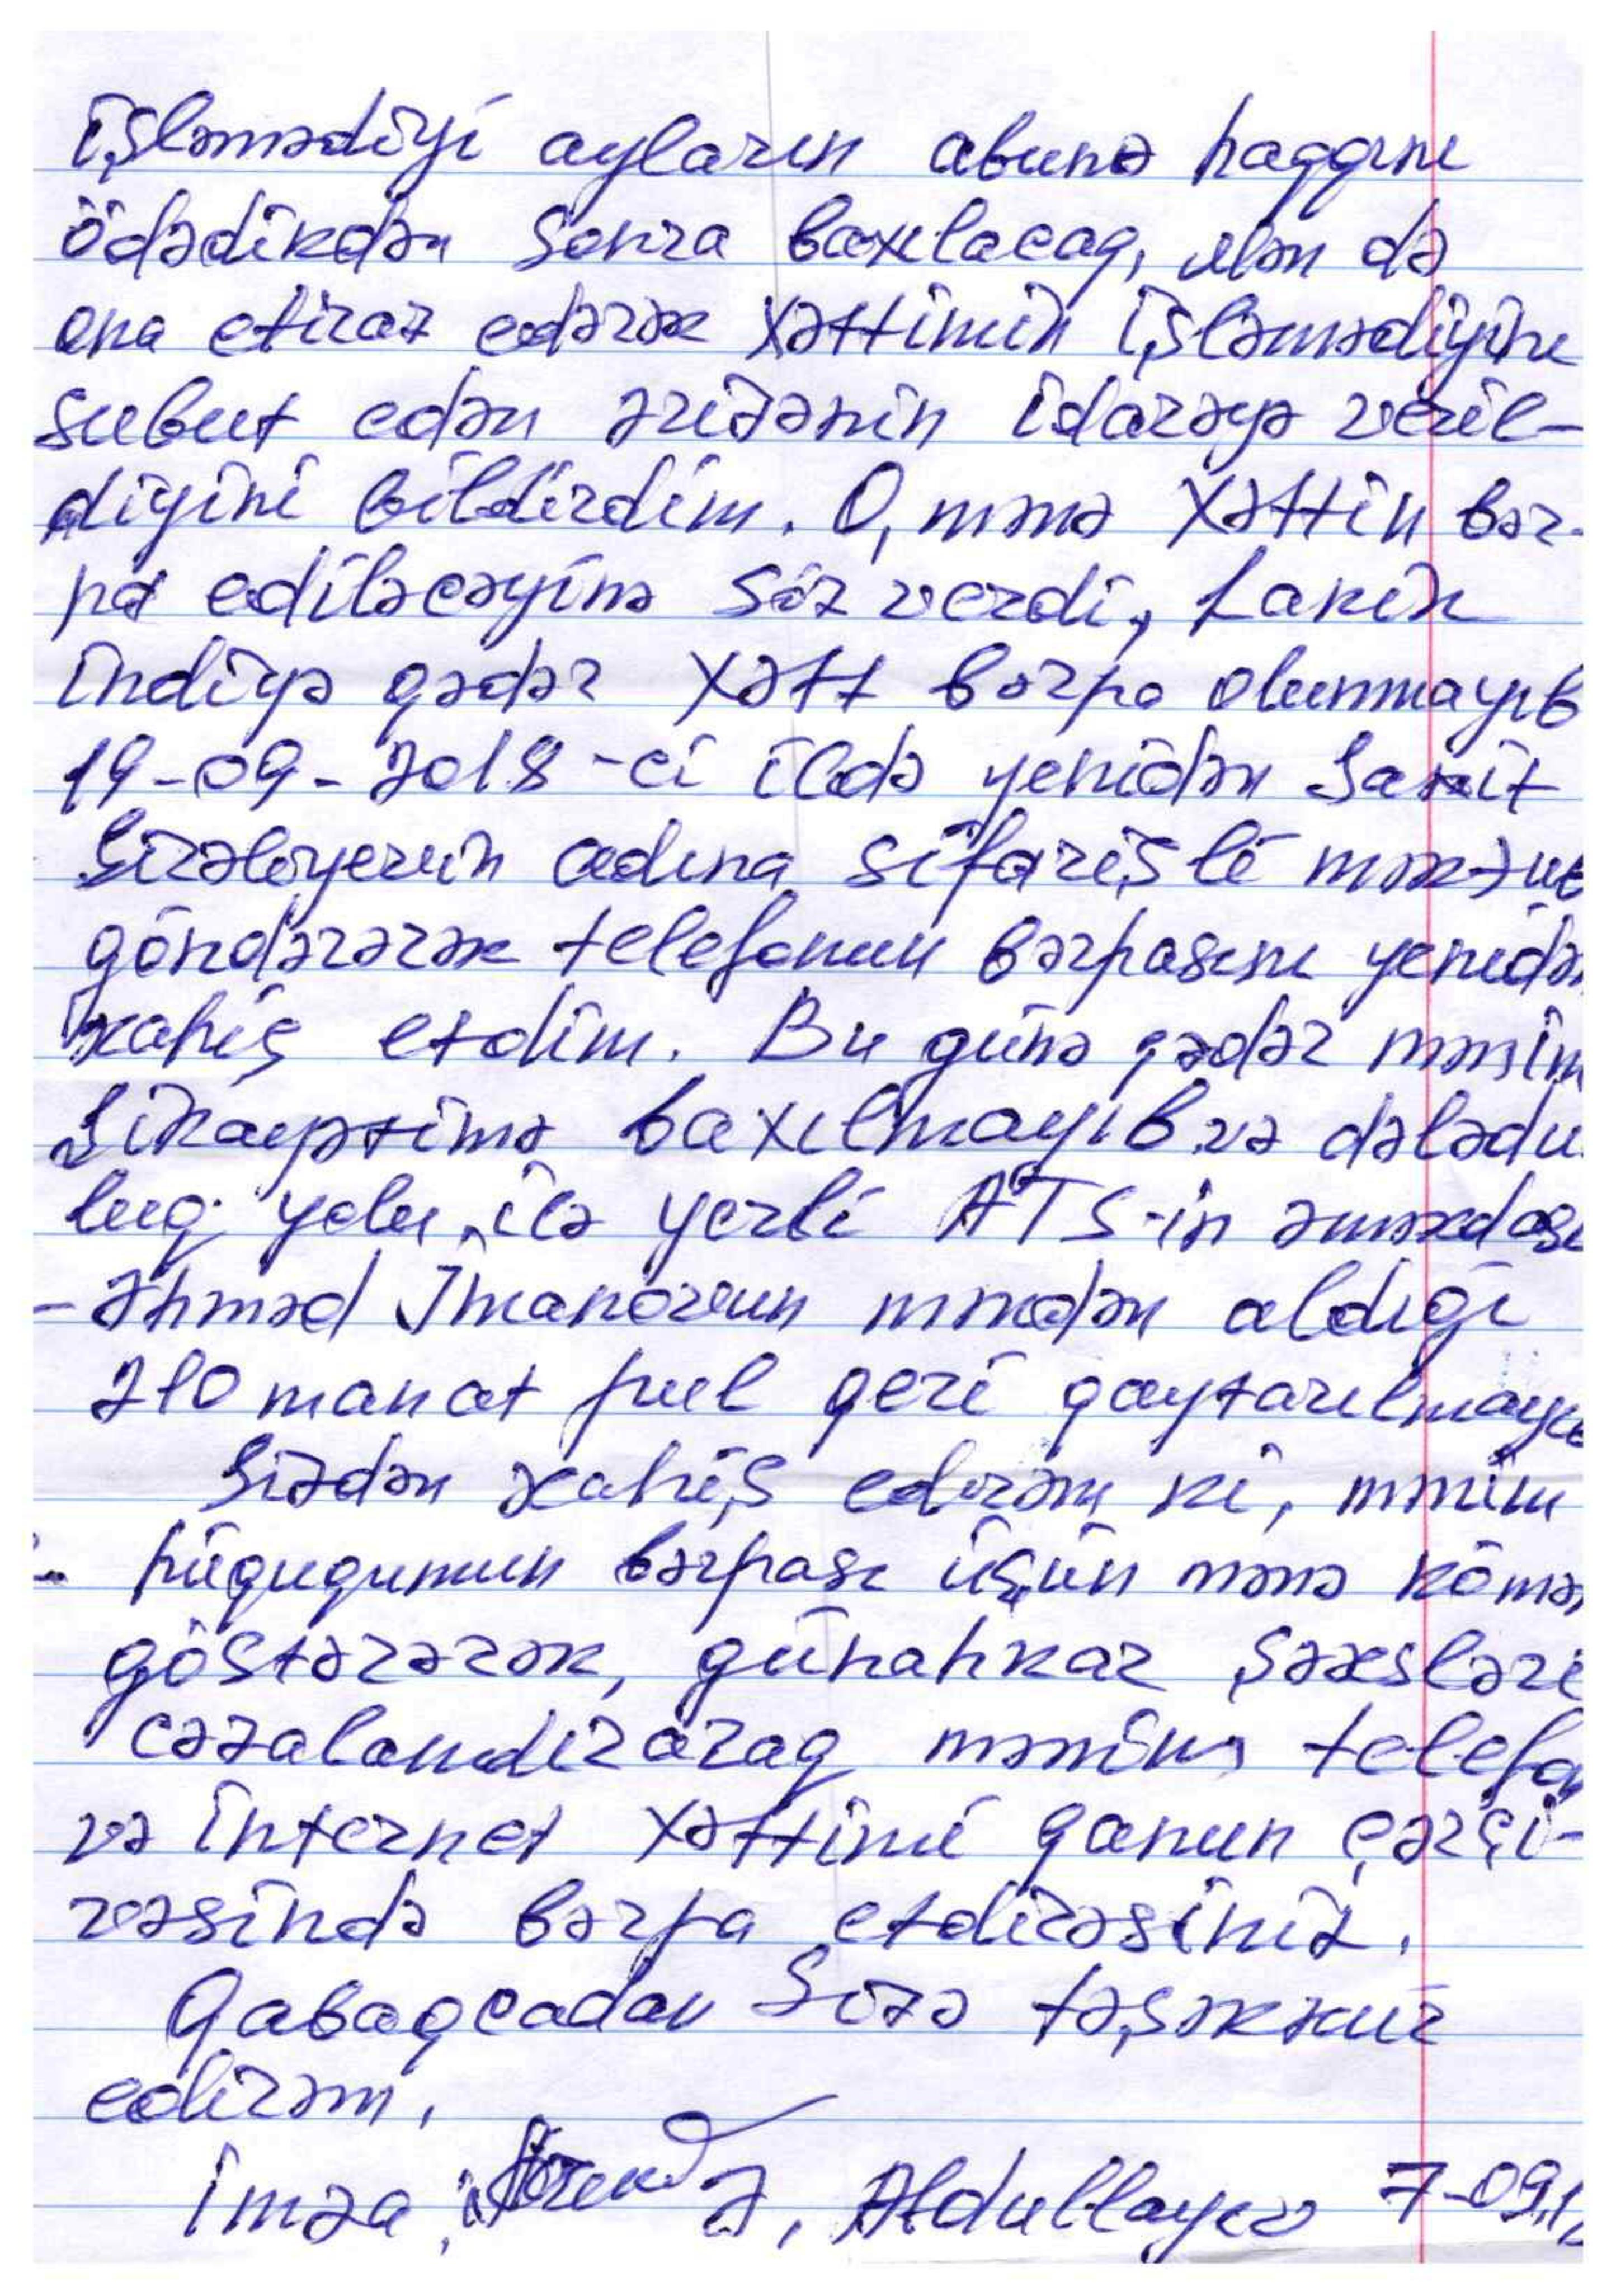 işləmədiyi ayların abunə haqqını
ödədikdən sonra baxılacaq, Mən də
ona etiraz edərək xəttimin işləmədiyini
subut edən ərizənin idarəyə veril-
diyini bildirdim. O, mənə xəttin bər-
pa ediləcəyinə söz verdi, Lakin
indiyə qədər xətt bərpa olunmayıb
19-09-2018-ci ildə yenidən Samit
Şirəliyevin adına sifarişli məktub
göndərərək telefonun bərpasını yenidən
xahiş etdim. Bu günə qədər mənim
Şikayətimə baxılmayıb və dələdu
luq yolu ilə yerli ATS-in əməkdaşı
- Əhməd İmanovun məndən aldığı
210 manat pul geri qaytarılmayıb
Sizdən xahiş edirəm ki, mənim
hüququmun bərpası üçün mənə kömə
göstərərək, günahkar şəxsləri
cəzalandıraraq mənim telefon
və internet xəttimi qanun çərçi-
vəsində bərpa etdirəsiniz.
Qabaqcadan Sizə təşəkkür
edirəm.
imza: Ə, Abdullayev 7-09.1